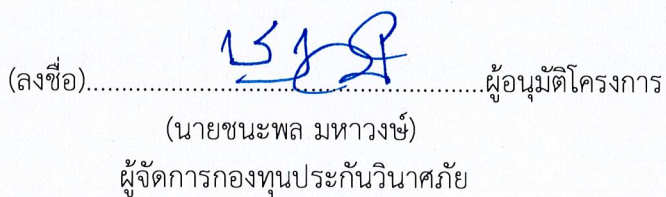 (ลงชื่อ)................................................ผู้อนุมัติโครงการ
(นายชนะพล มหาวงษ์)
ผู้จัดการกองทุนประกันวินาศภัย